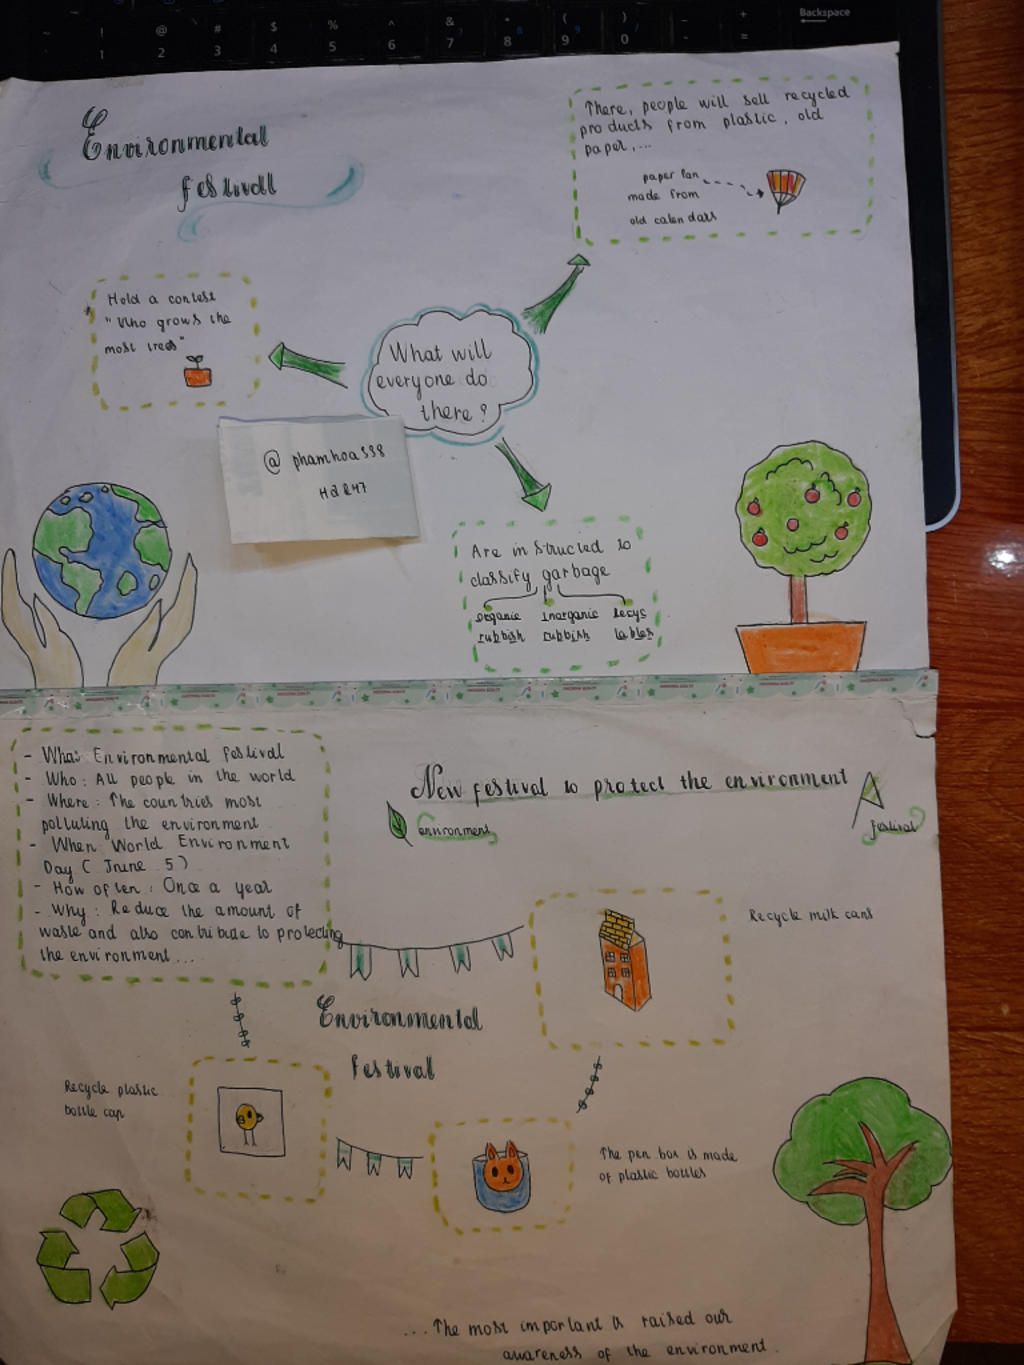 Backspace
~ ! @ # $ % ^ & * ( ) _ +
1 2 3 4 5 6 7 8 9 0 - =
Environmental
festivall
There, people will sell recycled
products from plastic, old
paper,...
paper fan
made from
old calendars
Hold a contest
"Who grows the
most trees"
What will
everyone do
there?
@ phamhoa538
Are instructed to
classify garbage
organic
rubbish
Inorganic
rubbish
Recyc
lables
- What: Environmental festival
- Who: All people in the world
- Where: The countries most
polluting the environment
- When World Environment
Day ( June 5)
- How often: Once a year
- Why: Reduce the amount of
waste and also contribute to protecting
the environment...
New festival to protect the environment
environment
festival
Recycle milk cans
Environmental
festival
Recycle plastic
bottle cap
The pen box is made
of plastic bottles
...The most important is raised our
awareness of the environment.